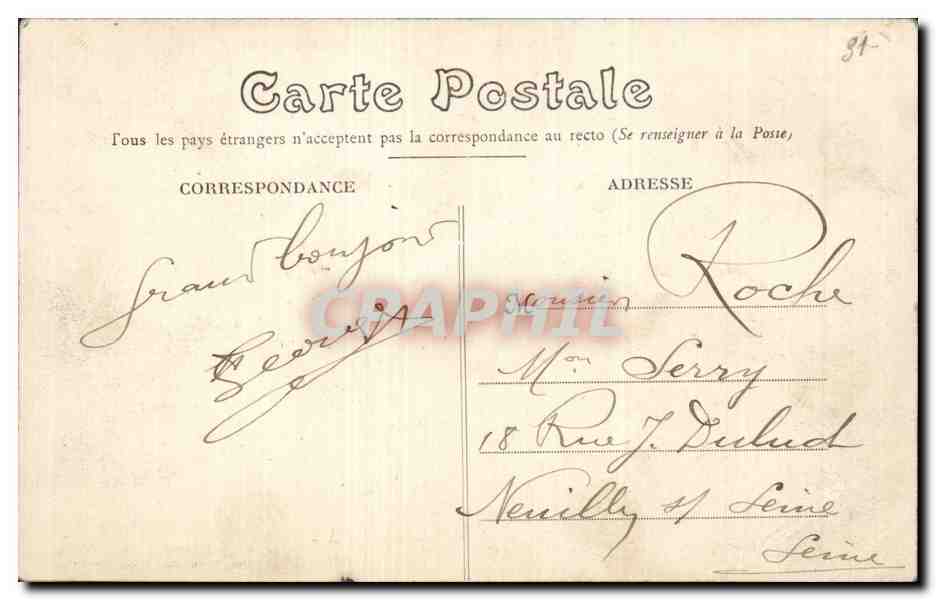 91-
Carte Postale
Tous les pays étrangers n'acceptent pas la correspondance au recto (Se renseigner à la Poste)
CORRESPONDANCE
Grand bonjour
Georges
ADRESSE
Monsieur Roche
Mon Serry
18 Rue J. Dulud
Neuilly s/ Seine
Seine
CPAPHIL